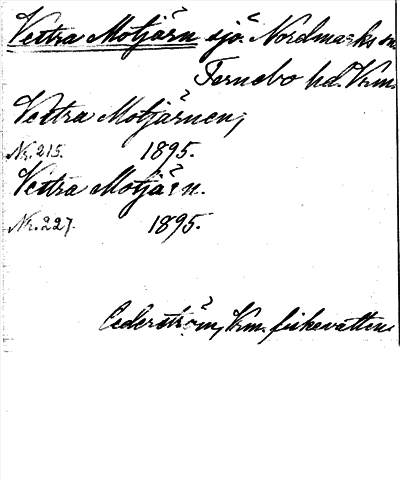 Vestra Motjärn sjö. Nordmarks sn.
Fernebo hd. Vrm.
Vestra Motjärnen,
Nr. 215. 1895.
Vestra Motjärn.
Nr. 227. 1895.
Cederström, Vrm. fiskevatten